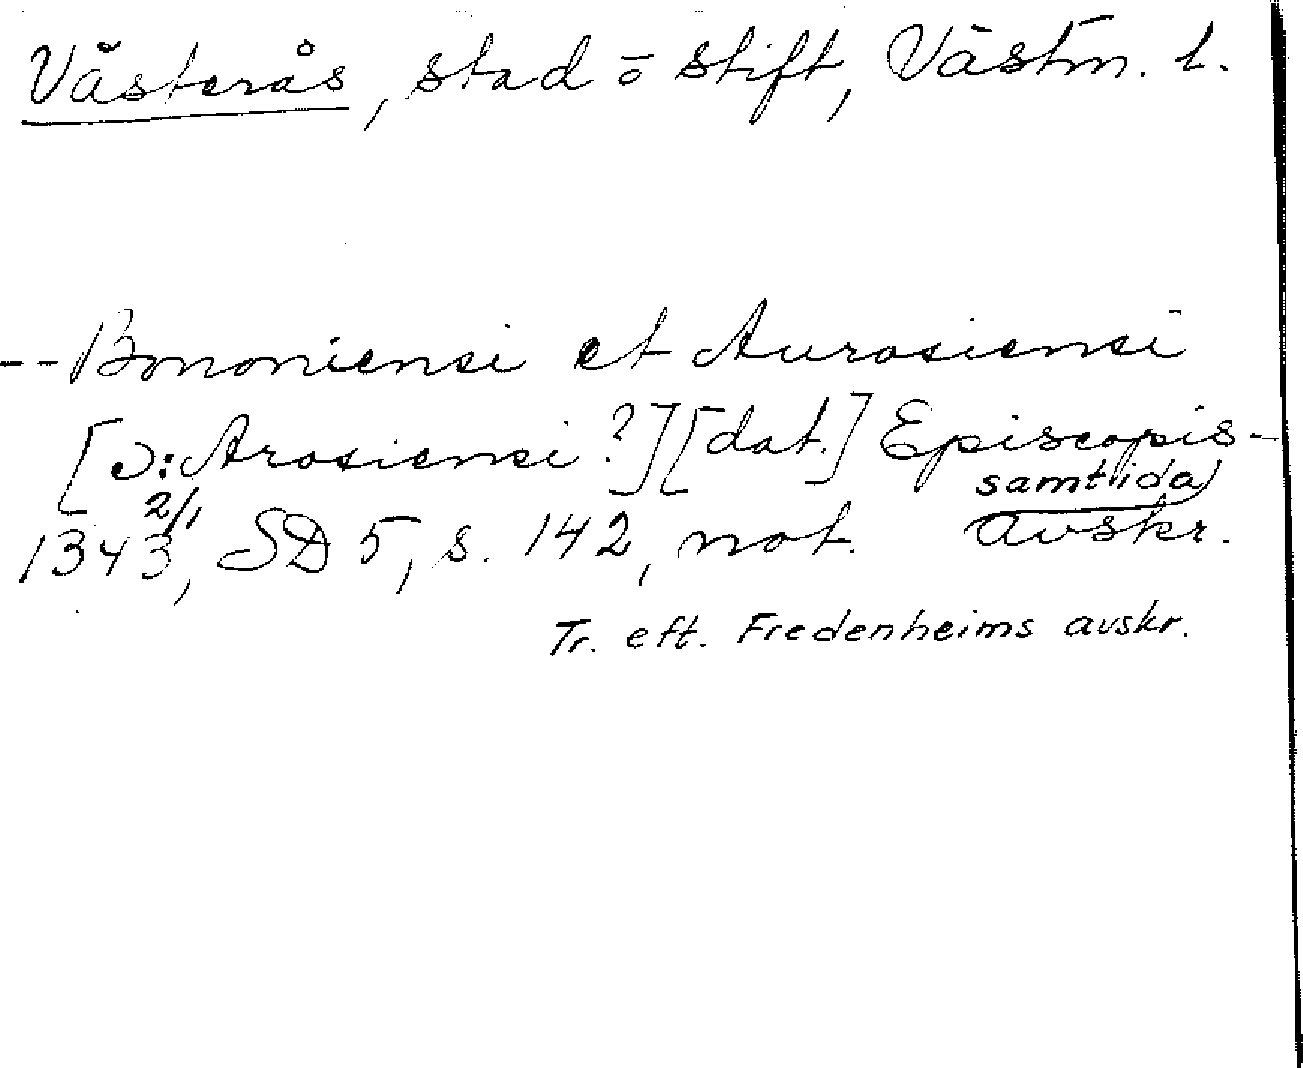 Västerås, stad o stift, Västm. l.
-- Bononiensi et Aurosiensi
[ɔ: Arosiensi?] [dat.] Episcopis -
samtida
1343 2/1, SD 5, s. 142, not. avskr.
Tr. eft. Fredenheims avskr.